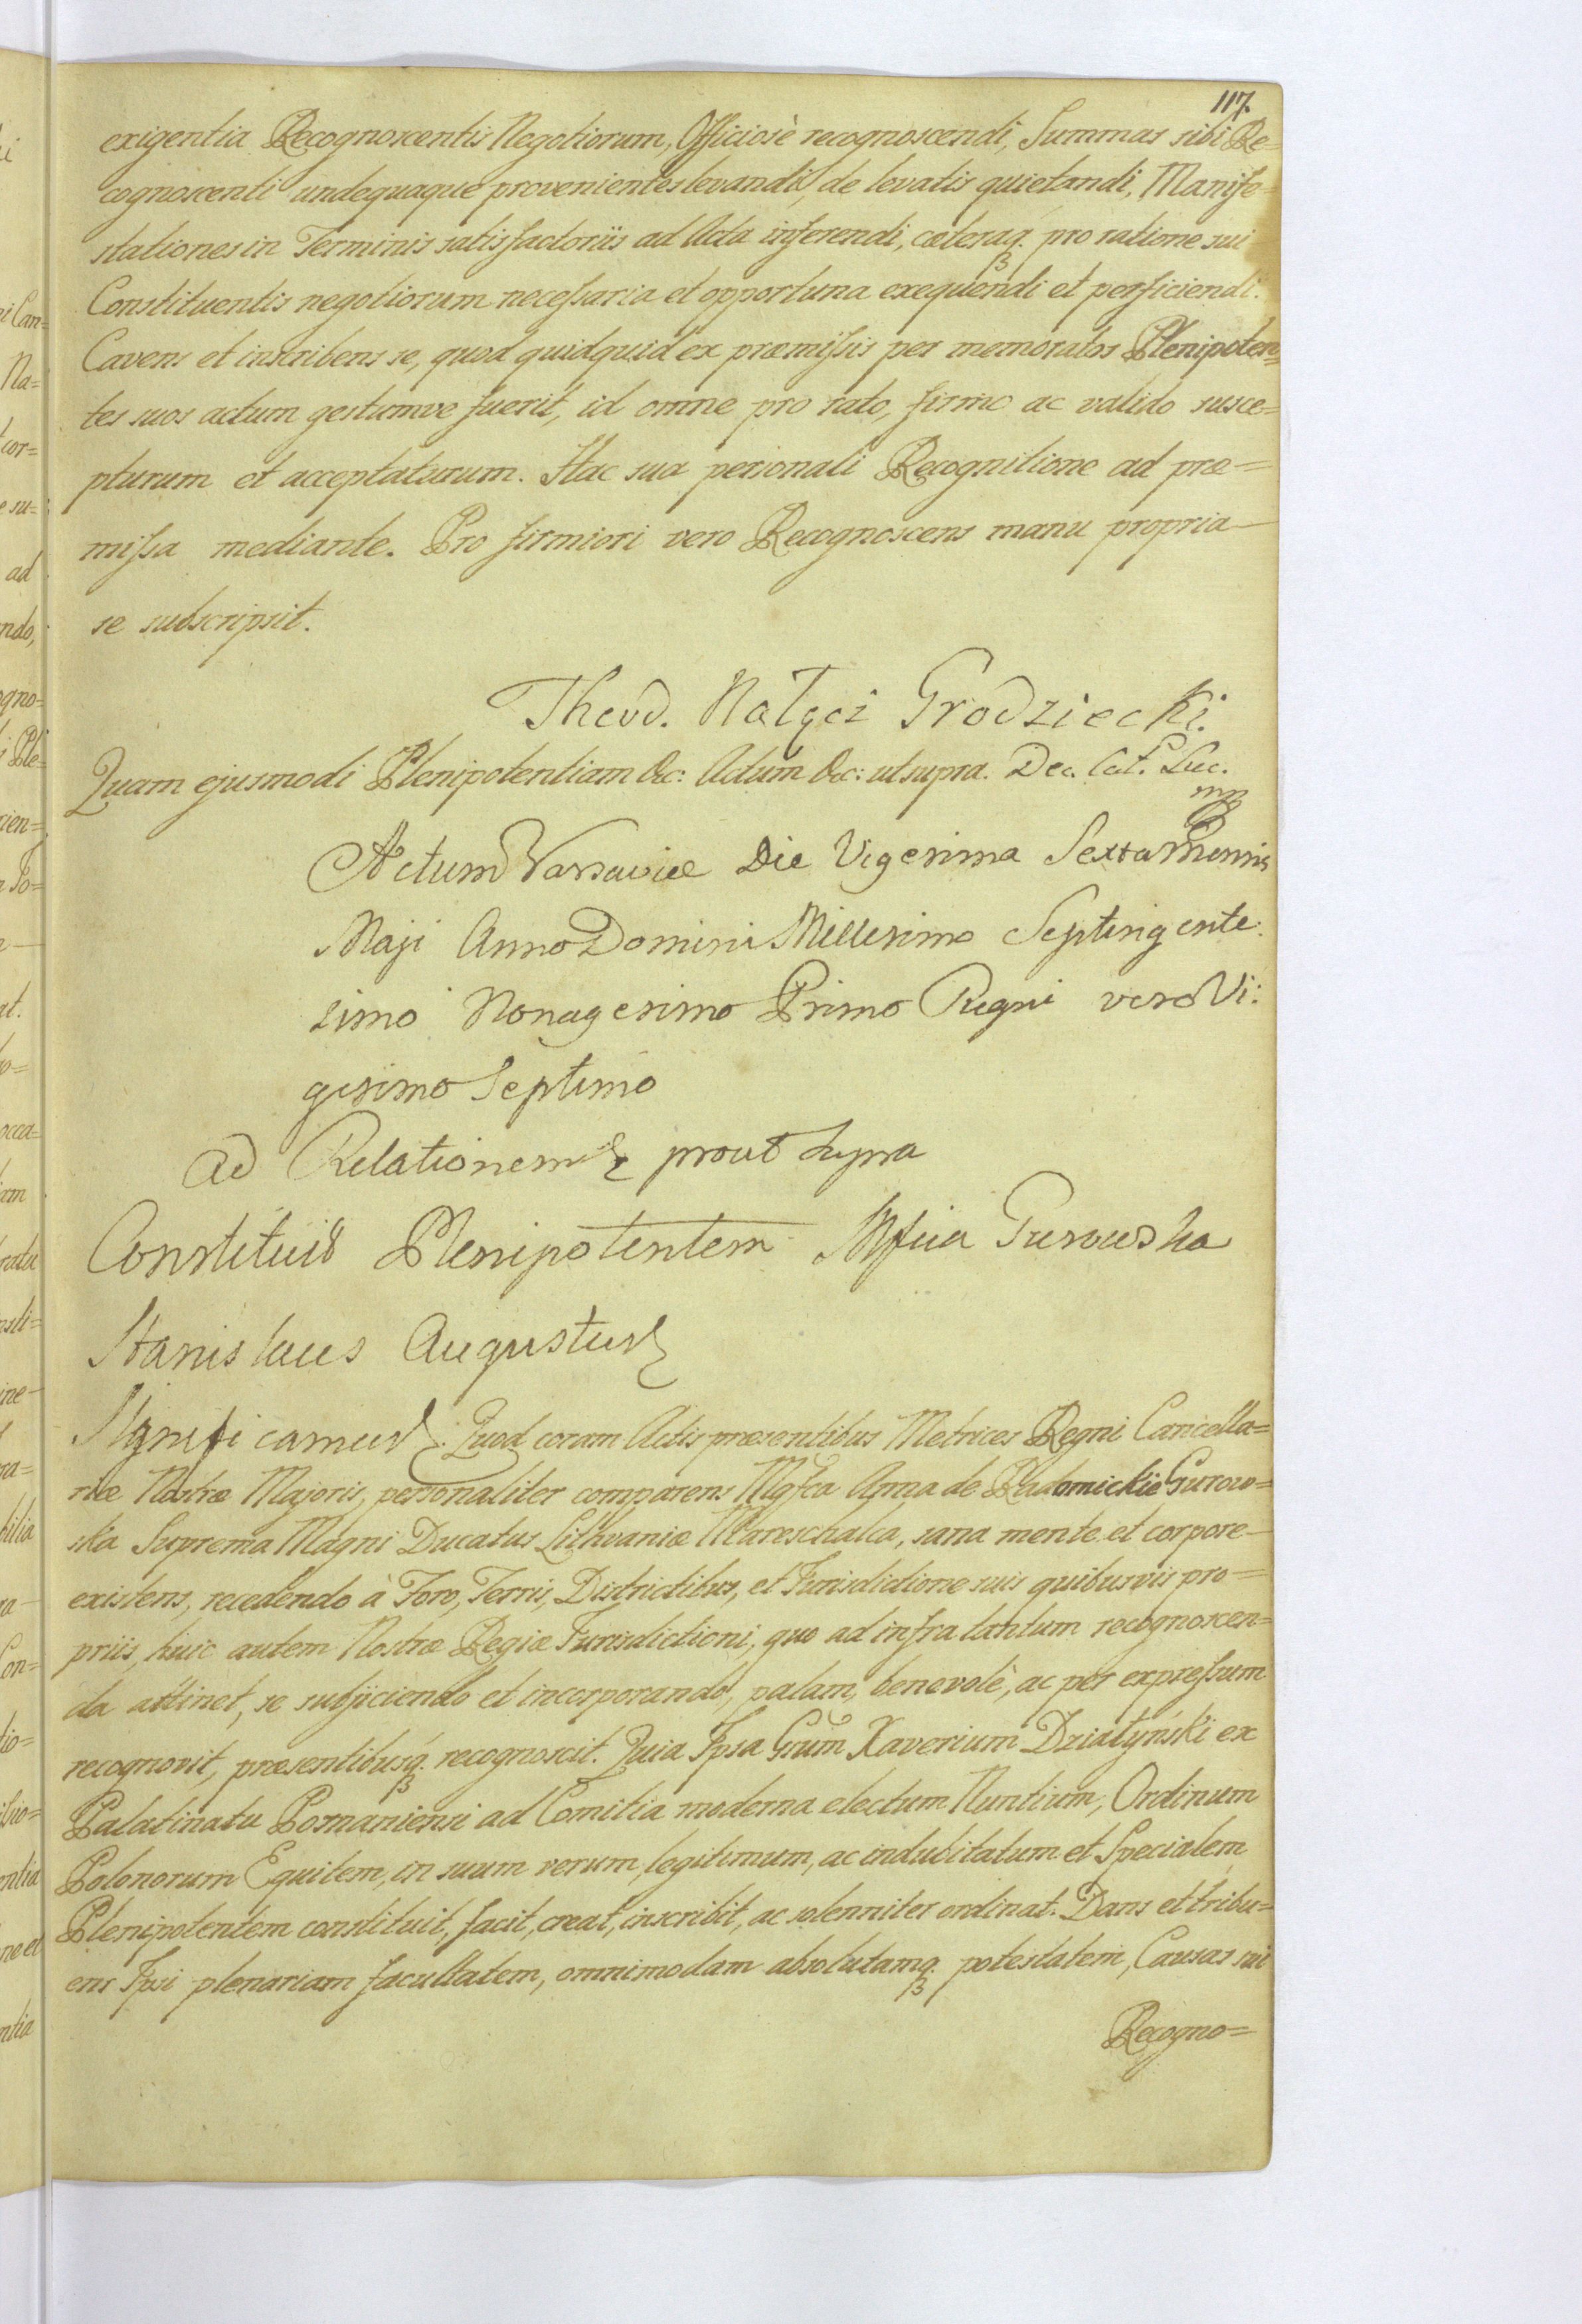 117.
exigentia Recognoscentis Negotiorum, Officiosè recognoscendi, Summas sibi Re=
cognoscenti undequaque provenientes levandi, de levatis quietandi, Manife=
stationes in Terminis satisfactoriis ad Acta inferendi, cæteraq. pro ratione sui
Constituentis negotiorum necessaria et opportuna exequendi et perficiendi.
Cavens et inscribens se, quod quidquid ex præmissis per memoratos Plenipoten=
tes suos actum gestumve fuerit, id omne pro rato, firmo ac valido susce=
pturum et acceptaturum. Hac sua personali Recognitione ad præ=
missa mediante. Pro firmiori vero Recognoscens manu propria
se subscripsit.
Theod. Nałęcz Grodziecki.
Quam ejusmodi Plenipotentiam &c: Actum &c: ut supra. Dec. Cat. Luc.
mp
Actum Varsaviæ Die Vigesima Sexta Mensis
Maji Anno Domini Millesimo Septingente:
simo Nonagesimo Primo Regni vero Vi:
gesimo Septimo
Ad Relationem & prout supra
Constituit Plenipotentem Mfica Gurowska
Stanislaus Augustus &
Significamus & Quod coram Actis præsentibus Metrices Regni Cancella=
riæ Nostræ Majoris, personaliter comparens Mgfca Anna de Radomickie Gurow=
ska Suprema Magni Ducatus Lithvaniæ Mareschalca, sana mente et corpore
existens, recedendo à Foro, Terris, Districtibus, et Jurisdictione suis quibusvis pro=
priis, huic autem Nostræ Regiæ Jurisdictioni, quo ad infra tantum recognoscen=
da attinet, se subjiciendo et incorporando, palam, benevolè, ac per expressum
recognovit, præsentibusq. recognoscit. Quia Ipsa Grum Xaverium Działyński ex
Palatinatu Posnaniensi ad Comitia moderna electum Nuntium, Ordinum
Polonorum Equitem, in suum verum, legitimum, ac indubitatum et Specialem
Plenipotentem constituit, facit, creat, inscribit, ac solenniter ordinat. Dans et tribu=
ens Ipsi plenariam facultatem, omnimodam absolutamq. potestatem, Causas sui
Recogno=